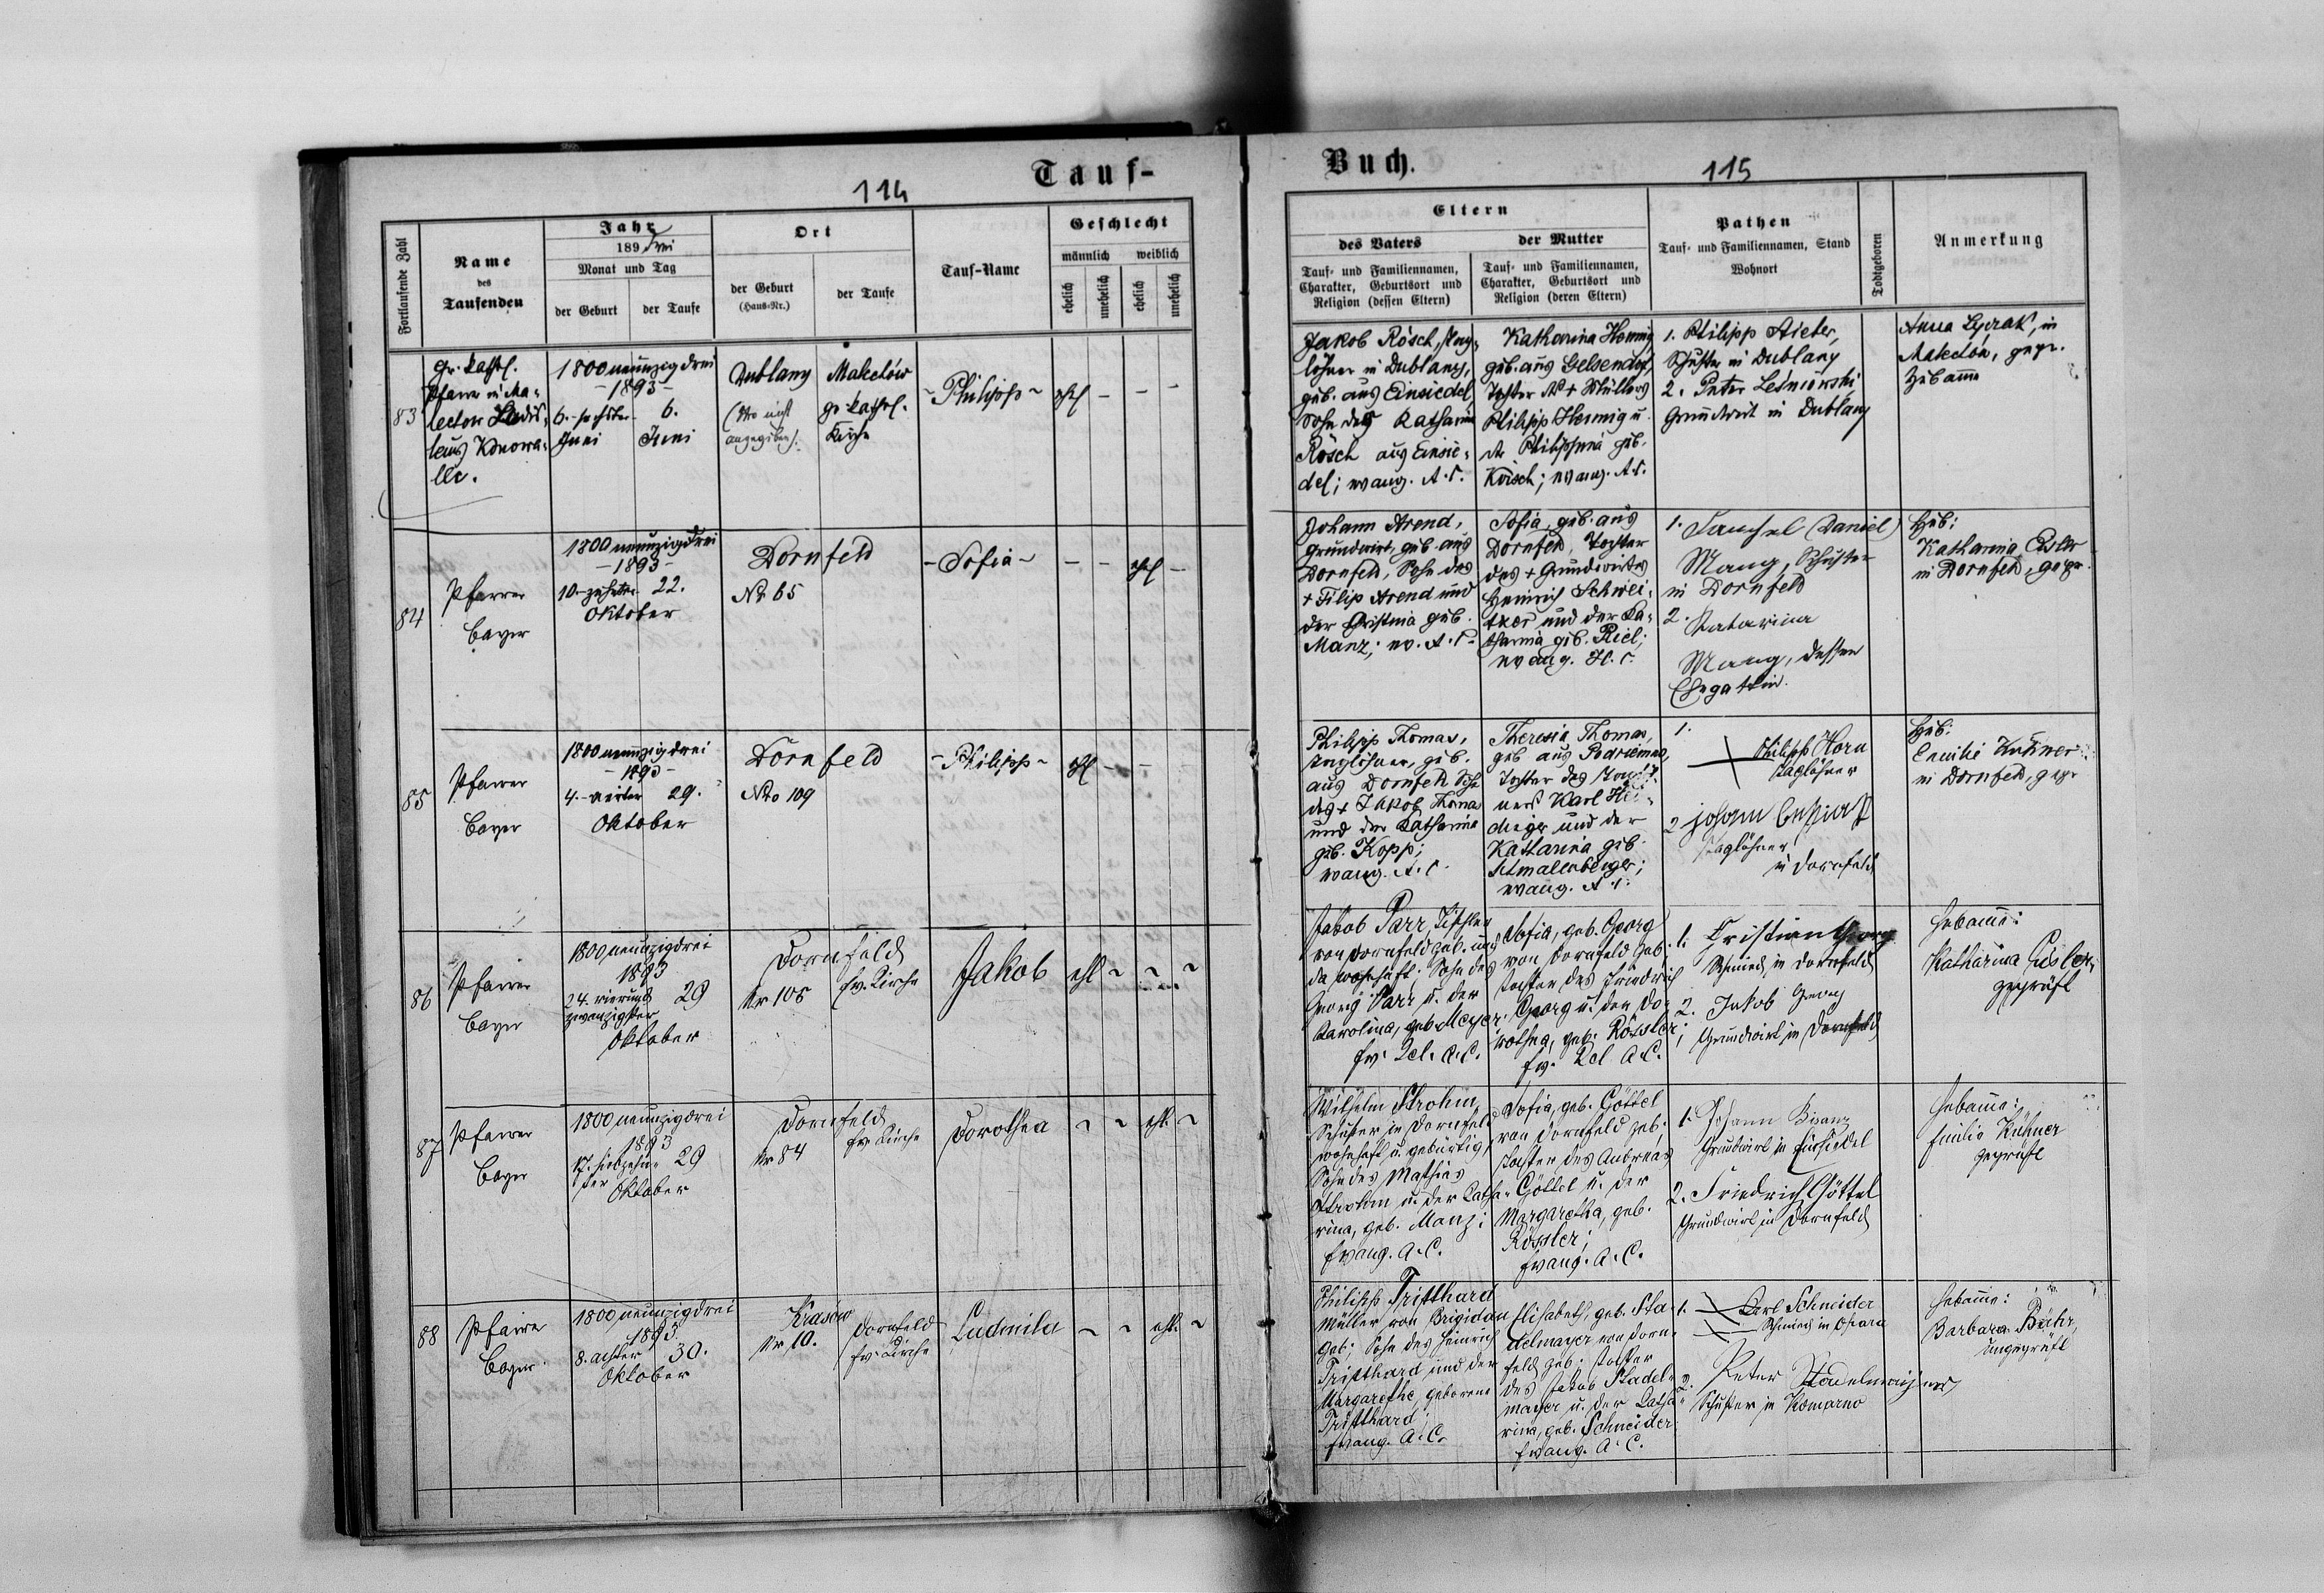 114
Tauf-
Fortlaufende Zahl
Name
des
Taufenden
Jahr
189 drei
Monat und Tag
der Geburt
der Taufe
Ort
der Geburt
(Haus-Nr.)
der Taufe
Tauf-Name
Geschlecht
männlich
weiblich
ehelich
unehelich
ehelich
unehelich
83
gr. kathol.
Pfarrer in Ma-
lectow Ladis-
laus Konowa-
llc.
1800 neunzig drei
- 1893 -
6.-sechster 6.
Juni Juni
Dublany
(No nicht
angegeben).
Malectów
gr. kathol.
Kirche
- Philipp -
ehl - - -
84
Pfarrer
Bayer
1800 neunzigdrei
- 1893 -
10.-zehnter 22.
Oktober
Dornfeld
No 65
- Sofia -
- - ehl -
85
Pfarrer
Bayer
1800 neunzig drei
- 1893 -
4.-vierter 29.
Oktober
Dornfeld
No 109
- Philipp -
ehl - -
86
Pfarrer
Bayer
1800 neunzigdrei
1893
24. vierund 29
zwanzigster
Oktober
Dornfeld
Nr 105 ev. Kirche
Jakob
ehl ~ ~ ~
87
Pfarrer
Bayer
1800 neunzigdrei
1893
17. siebzehn- 29
ter
Oktober
Dornfeld
Nr 84 ev. Kirche
Dorothea
~ ~ ehl. ~
88
Pfarrer
Bayer.
1800 neunzigdrei
1893.
8. achter 30.
Oktober
Krasow
Nr 10.
Dornfeld
ev. Kirche
Ludmila
~ ~ ehl. ~
Buch.
115
Eltern
des Vaters
Tauf- und Familiennamen,
Charakter, Geburtsort und
Religion (dessen Eltern)
der Mutter
Tauf- und Familiennamen,
Charakter, Geburtsort und
Religion (deren Eltern)
Pathen
Tauf- und Familiennamen, Stand
Wohnort
Todtgeboren
Anmerkung
Jakob Rösch, Tag-
löhner in Dublany,
geb. aus Einsiedel
Sohn der Katharina
Rösch aus Einsie-
del; evang. A. C.
Katharina Hennig
geb. aus Gelsendorf,
Tochter des + Müllers
Philipp Hennig u.
der Philippina geb.
Kirsch; evang. A. C.
1. Philipp
Schuster in Dublany
2. Peter Leśniowski
Grundwirt in Dublany
Anna Lyczak, in
Malectów, gepr.
Hebamme
Johann Arend,
Grundwirt, geb. aus
Dornfeld, Sohn des
+ Filip Arend und
der Christina geb.
Manz; ev. A. C.
Sofia, geb. aus
Dornfeld, Tochter
des + Grundwirtes
Heinrich Schwei-
tzer und der Ka-
tharina geb. Riel;
evang. H. C.
1. (Daniel)
Mang, Schuster
in Dornfeld
2. Katarina
Mang, dessen
Ehegattin.
Heb:
Katharina Eisler
in Dornfeld, gepr.
Philipp Thomas,
Taglöhner, geb.
aus Dornfeld Sohn
des + Jakob Thomas
und der Katharina
geb. Kopp;
evang. A. C.
Theresia Thomas,
geb. aus
Tochter des
Karl
und der
Katharina geb.
Schmallenberger;
evang. A. C.
1.
Philipp Horn
Taglöhner
2 Johann
Taglöhner
in Dornfeld
Heb:
Emilie Kühner
in Dornfeld, gepr
Jakob Parr, Tischler
von Dornfeld geb. und
da wohnhaft; Sohn des
Georg Parr u. der
Karolina, geb. Meyer.
ev. Rel. A. C.
Sofia, geb. Georg
von Dornfeld geb.
Tochter des Friedrich
Georg u. der Do-
rothea, geb. Rössler;
ev. Rel A C.
1. Cristian Georg
Schmied, in Dornfeld
2. Jakob Georg
Grundwirt in Dornfeld
Hebamme:
Katharina Eisler,
geprüft
Wilhelm Strohm,
Schuster in Dornfeld
wohnhaft u. gebürtig,
Sohn des Mathias
Strohm u. der Katha-
rina, geb. Manz;
Evang. A. C.
Sofia, geb. Göttel
von Dornfeld geb.
Tochter des Andreas
Göttel u. der
Margaretha, geb.
Rössler;
Evang. A. C.
1. Johann Bisanz
Grundwirt in Einsiedel
2. Friedrich Göttel
Grundwirt in Dornfeld
Hebamme:
Emilie Kühner
geprüft
Philipp Tristhard
Müller von Brigidau
geb.; Sohn des Heinrich
Tristhard und der
Margarethe, geborene
Tristhard;
Evang. A. C.
Elisabeth, geb. Sta-
delmayer von Dorn-
feld geb. Tochter
des Jakob Stadel-
mayer u. der Katha-
rina, geb. Schneider
Evang. A. C.
1. Carl Schneider
Schmied in
2. Peter Stadelmayer
Schuster in Komarno
Hebamme:
Barbara Bühr,
ungeprüft